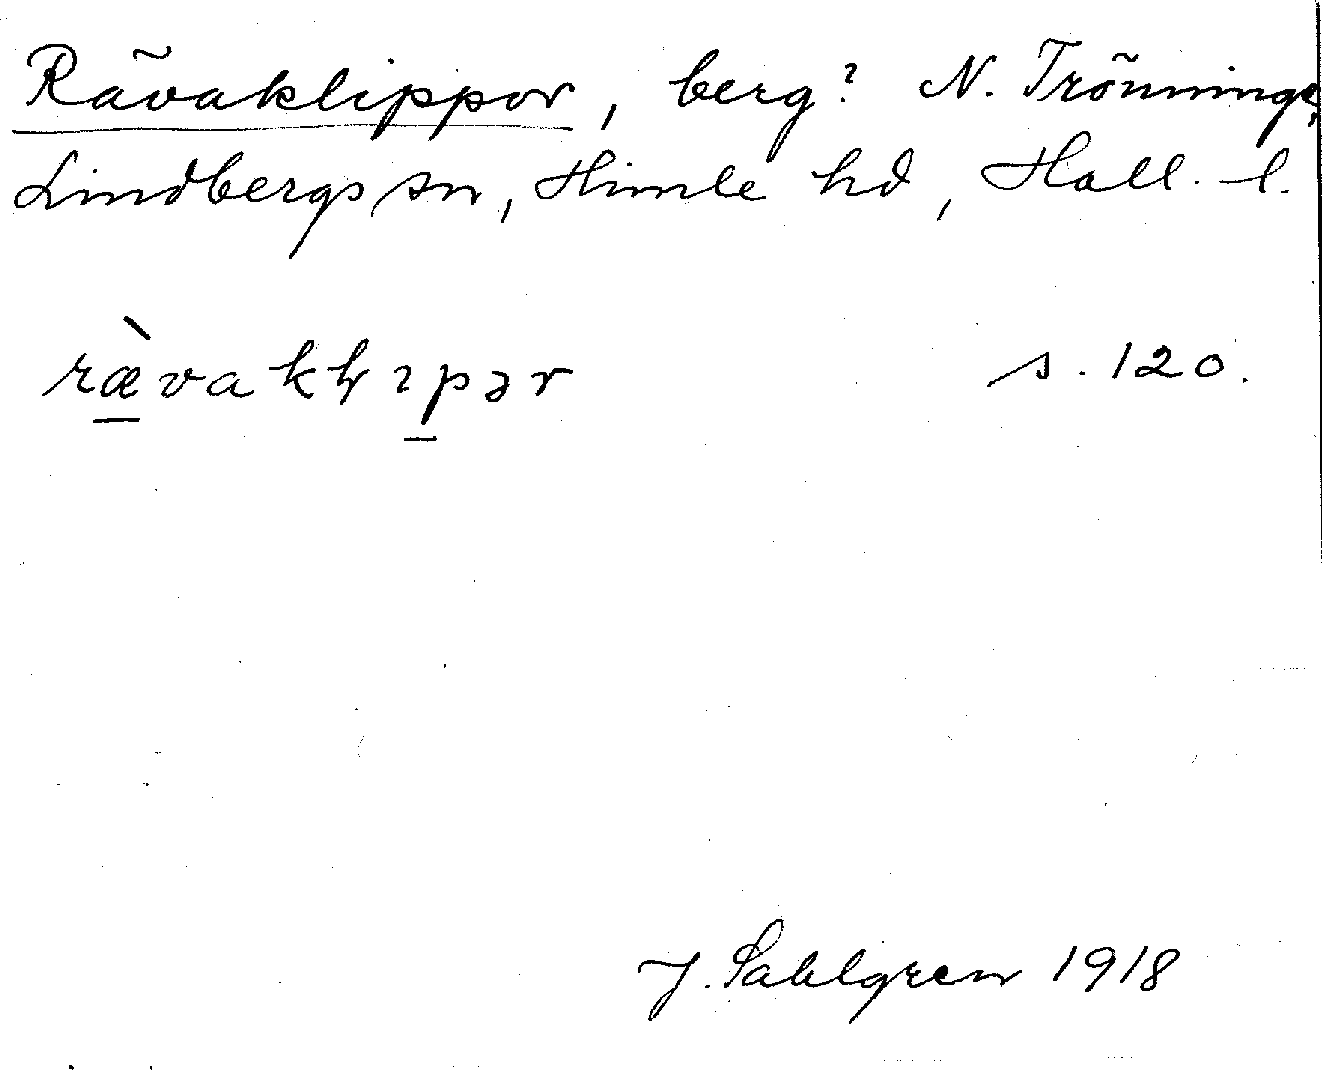 Rävaklippor, berg? N. Trönninge,
Lindbergs sn, Himle hd, Hall. l.
ræ̀vakłıpər s. 120.
J. Sahlgren 1918